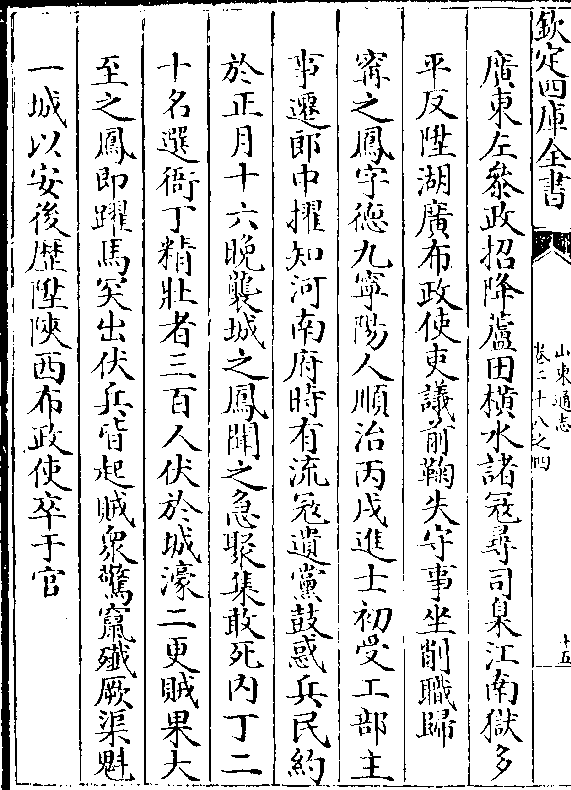 欽定四庫全書
山東通志
卷二十八之四
十五
廣東左叅政招降蘆田橫水諸冦尋司臬江南獄多
平反陞湖廣布政使吏議前鞫失守事坐削職歸
甯之鳳字德九寧陽人順治丙戌進士初受工部主
事遷郎中擢知河南府時有流冦遺黨鼓惑兵民約
於正月十六晚襲城之鳳聞之急聚集敢死內丁二
十名選衙丁精壯者三百人伏於城濠二更賊果大
至之鳳即躍馬突出伏兵皆起賊衆驚竄殲厥渠魁
一城以安後歴陞陜西布政使卒于官